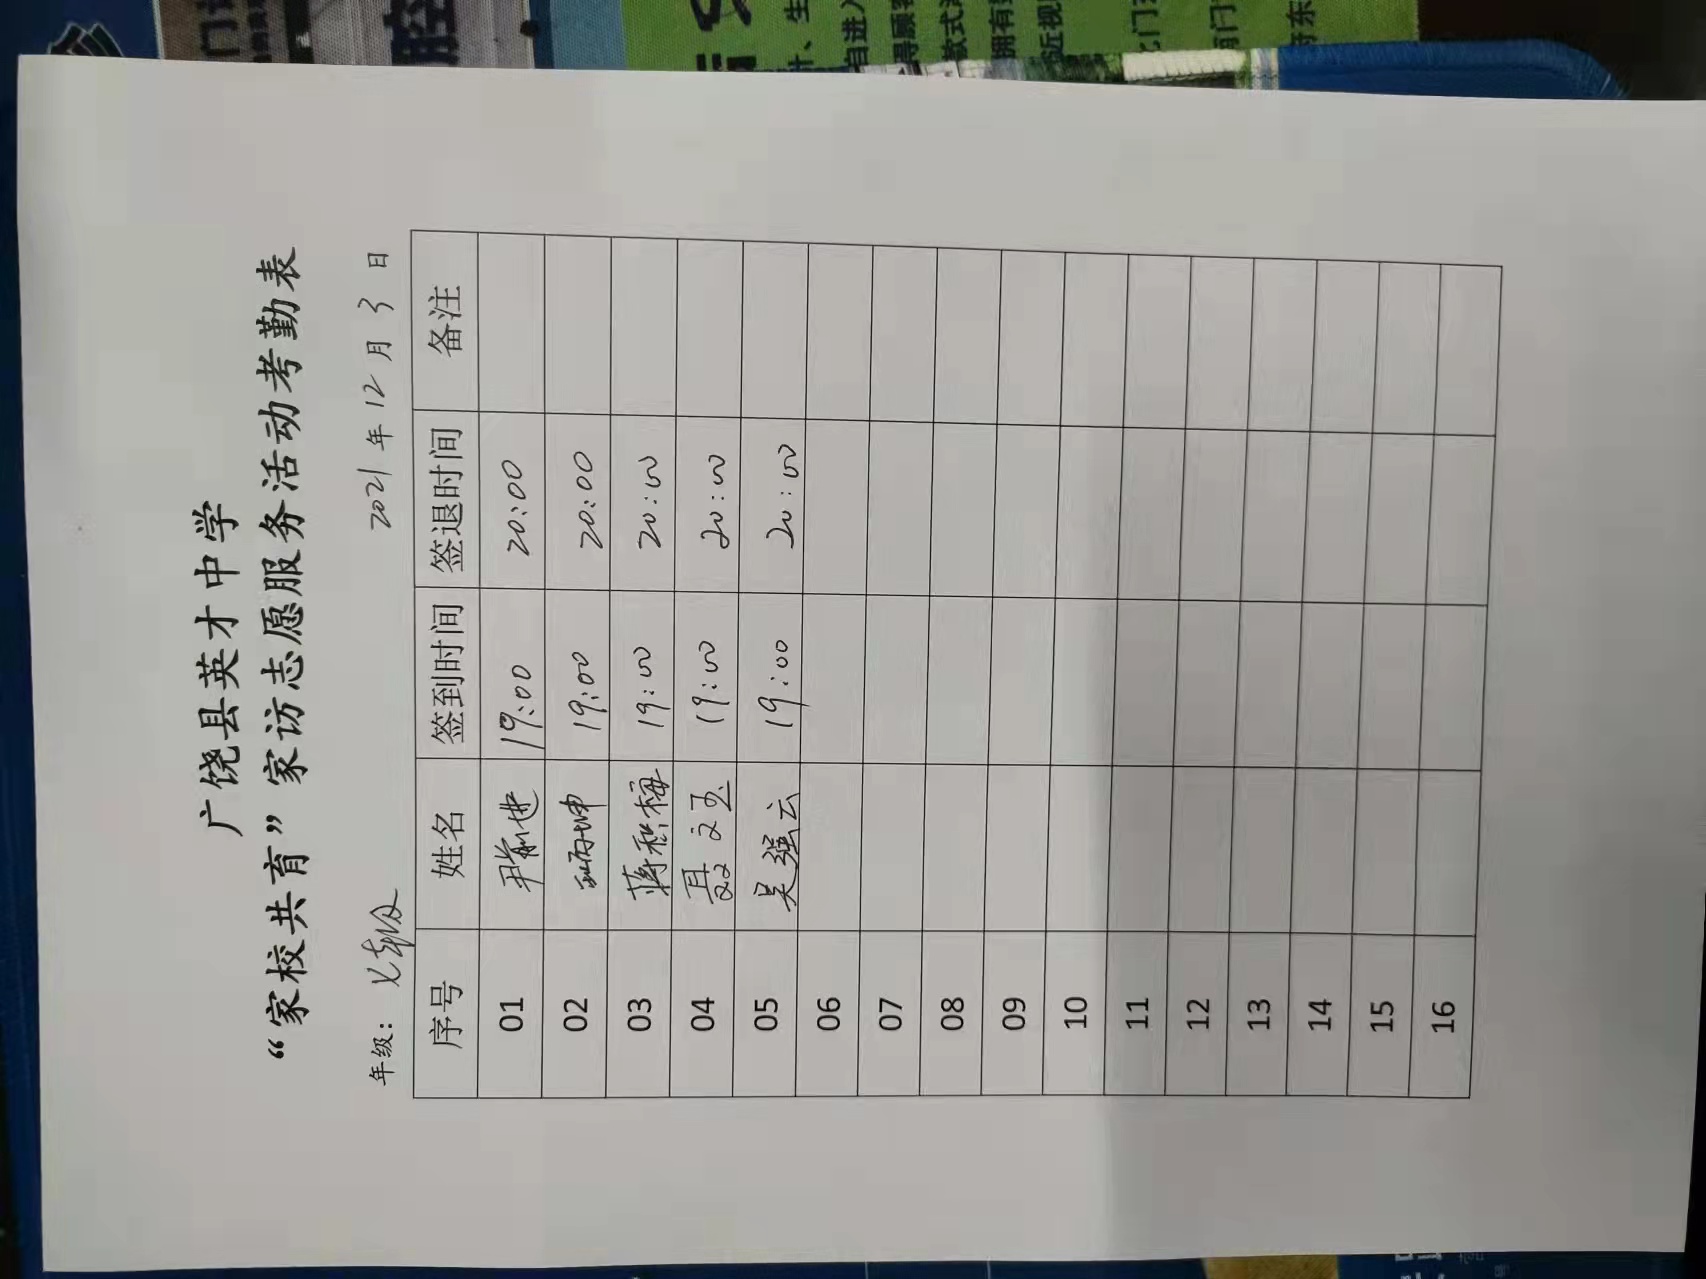 广饶县英才中学
“家校共育”家访志愿服务活动考勤表
年级：七年级 2021年12月3日
序号 姓名 签到时间 签退时间 备注
01 19:00 20:00
02 19:00 20:00
03 蒋积梅 19:00 20:00
04 聂文玉 19:00 20:00
05 吴强云 19:00 20:00
06
07
08
09
10
11
12
13
14
15
16